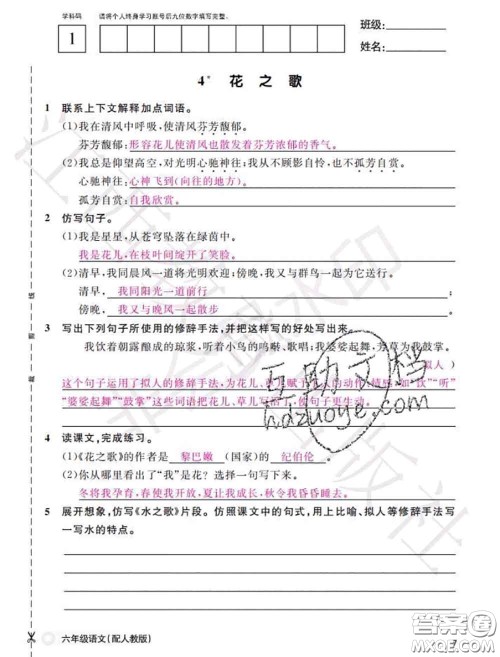 学科码 请将个人终身学习账号后九位数字填写完整。
1
班级:
姓名:
4* 花之歌
1 联系上下文解释加点词语。
(1)我在清风中呼吸,使清风芬芳馥郁。
芬芳馥郁:形容花儿使清风也散发着芬芳浓郁的香气。
(2)我总是仰望高空,对光明心驰神往;我从不顾影自怜,也不孤芳自赏。
心驰神往:心神飞到(向往的地方)。
孤芳自赏:自我欣赏。
2 仿写句子。
(1)我是星星,从苍穹坠落在绿茵中。
我是花儿,在枝叶间绽开了笑脸。
(2)清早,我同晨风一道将光明欢迎;傍晚,我又与群鸟一起为它送行。
清早, 我同阳光一道前行
傍晚, 我又与晚风一起散步 。
3 写出下列句子所使用的修辞手法,并把这样写的好处写出来。
我饮着朝露酿成的琼浆,听着小鸟的鸣啭、歌唱;我婆娑起舞,芳草为我鼓掌。
拟人 )
这个句子运用了拟人的修辞手法,为花儿、草儿赋予人的动作、情感,如“饮”“听”
“婆娑起舞”“鼓掌”这些词语把花儿、草儿写活了,使
4 读课文,完成练习。
(1)《花之歌》的作者是 黎巴嫩 (国家)的 纪伯伦 。
(2)你从哪里看出了“我”是花?选择一句写下来。
冬将我孕育,春使我开放,夏让我成长,秋令我昏昏睡去。
5 展开想象,仿写《水之歌》片段。仿照课文中的句式,用上比喻、拟人等修辞手法写
一写水的特点。
六年级语文(配人教版)
7
互助文档
hdzuoye.com
答案圈
MXQE.COM